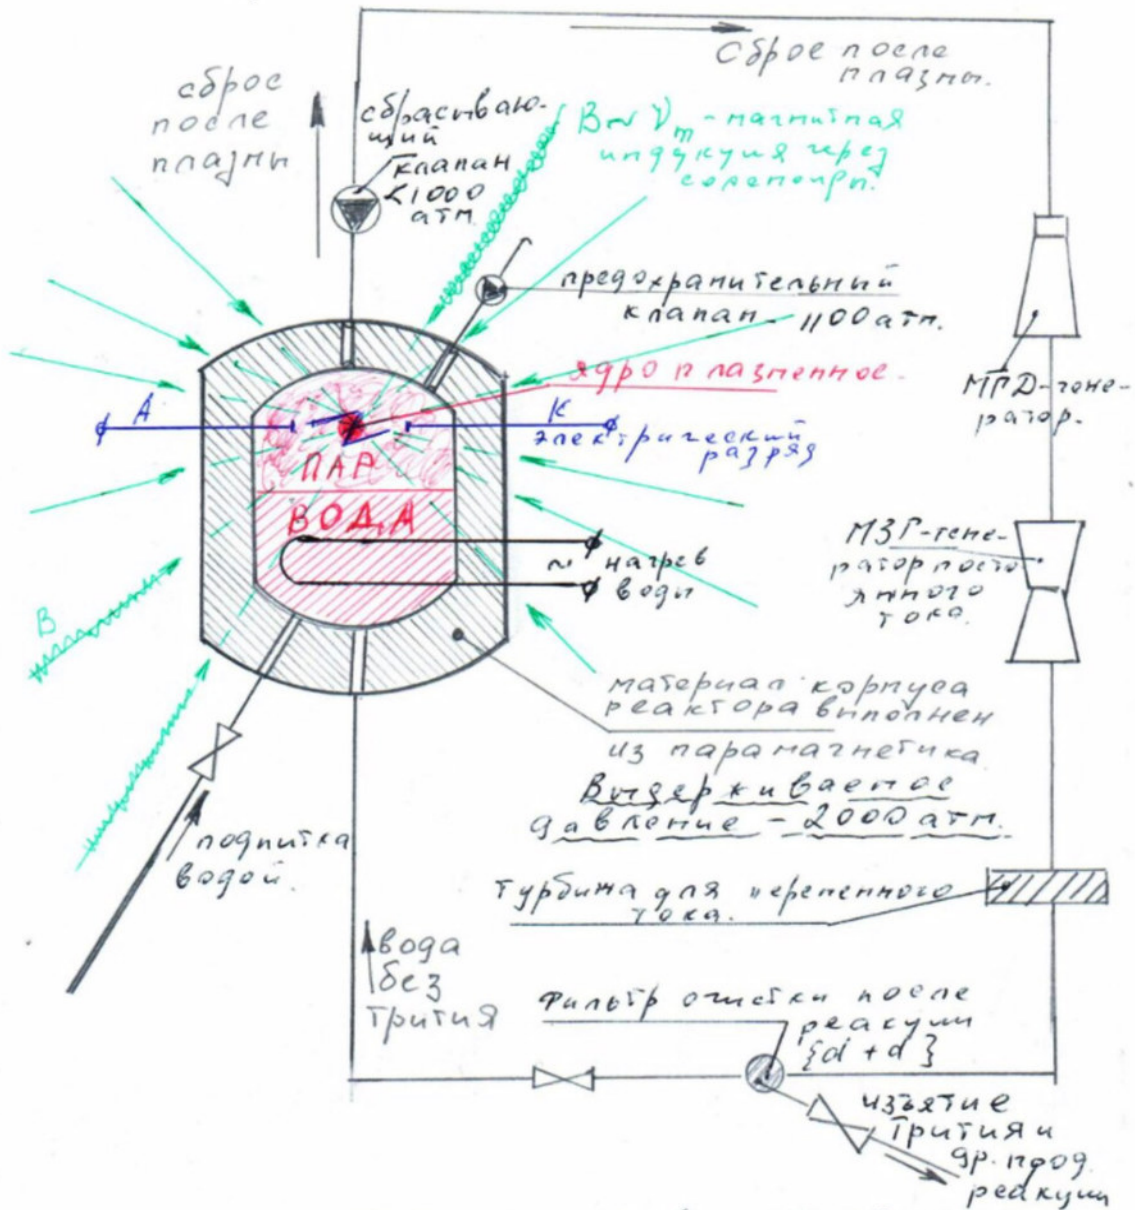 сброс после
плазмы.
сброс
после
плазмы
сбрасываю-
щий
клапан
<1000
атм
B~ν_m - магнитная
индукция через
соленоиды.
предохранительный
клапан - 1100 атм.
ядро плазменное.
МГД-гене-
ратор.
А
К
электрический
разряд
ПАР
ВОДА
~ нагрев
воды
МЗГ-гене-
ратор посто
янного
тока.
В
материал корпуса
реактора выполнен
из парамагнетика
Выдерживаемое
давление - 2000 атм.
подпитка
водой.
турбина для переменного
тока.
вода
без
трития
Фильтр очистки после
реакции
{d + d}
изъятие
трития и
др. прод.
реакции